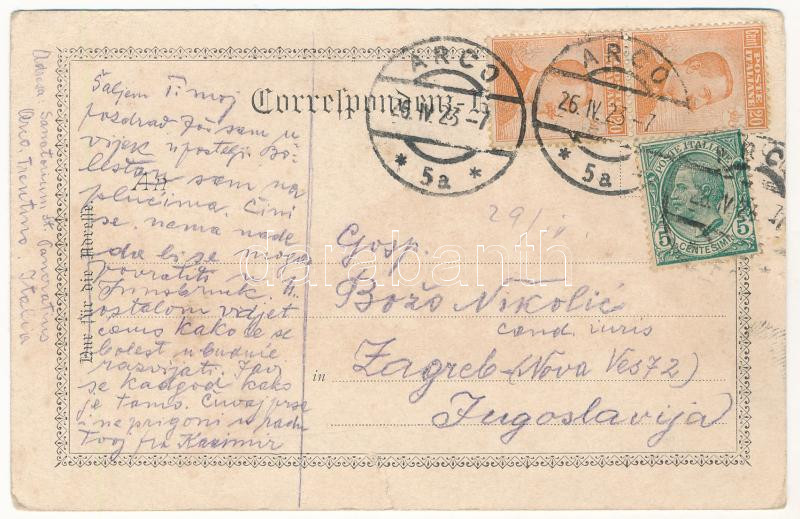 Correspondenz-K
An
Nur für die Adresse
in
POSTE ITALIANE
Cent 20
POSTE ITALIANE
5 CENTESIMI 5
ARCO
26.IV.23-7
* 5a *
ARCO
26.IV.23-7
* 5a *
29/
Gosp.
Božo Nikolić
cand. iuris
Zagreb (Nova Ves 72)
Jugoslavija
Šaljem Ti moj
pozdrav Još sam u
vijek u postelji Bo-
lestan sam na
plućima. Čini
se, nema nade
da bi se mogao
povratiti u
Innsbruk. U
ostalom vidjet
ćemo kako će se
bolest u buduće
razvijati. Javi
se kadgod kako
je tamo. Čuvaj prse
i ne prigoni u radu
Tvoj fra Kazimir
Adresa Sanatorium St. Pancratius
Arco. Trentino. Italia
darabanth